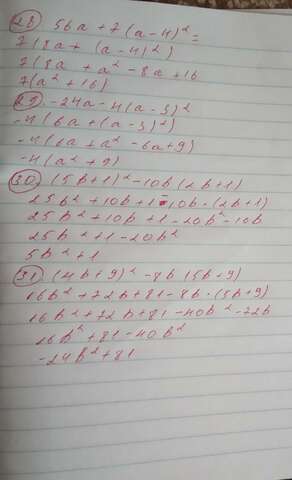 28 56a + 7(a-4)² =
7(8a + (a-4)²)
7(8a + a² - 8a + 16
7(a² + 16)
29 -24a - 4(a-3)²
-4(6a + (a-3)²)
-4(6a + a² - 6a + 9)
-4(a² + 9)
30 (5b+1)² - 10b(2b+1)
25b² + 10b + 1 - 10b · (2b+1)
25b² + 10b + 1 - 20b² - 10b
25b² + 1 - 20b²
5b² + 1
31 (4b+9)² - 8b(5b+9)
16b² + 72b + 81 - 8b · (5b+9)
16b² + 72b + 81 - 40b² - 72b
16b² + 81 - 40b²
-24b² + 81